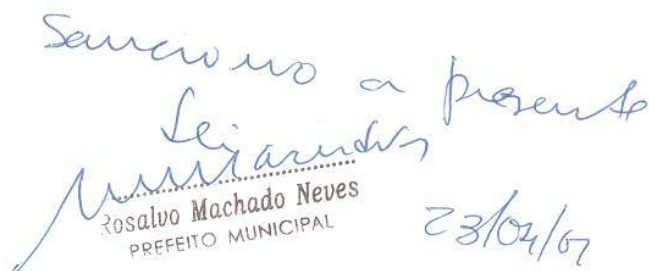 Sanciono a presente
Lei
Rosalvo Machado Neves
PREFEITO MUNICIPAL
23/04/07